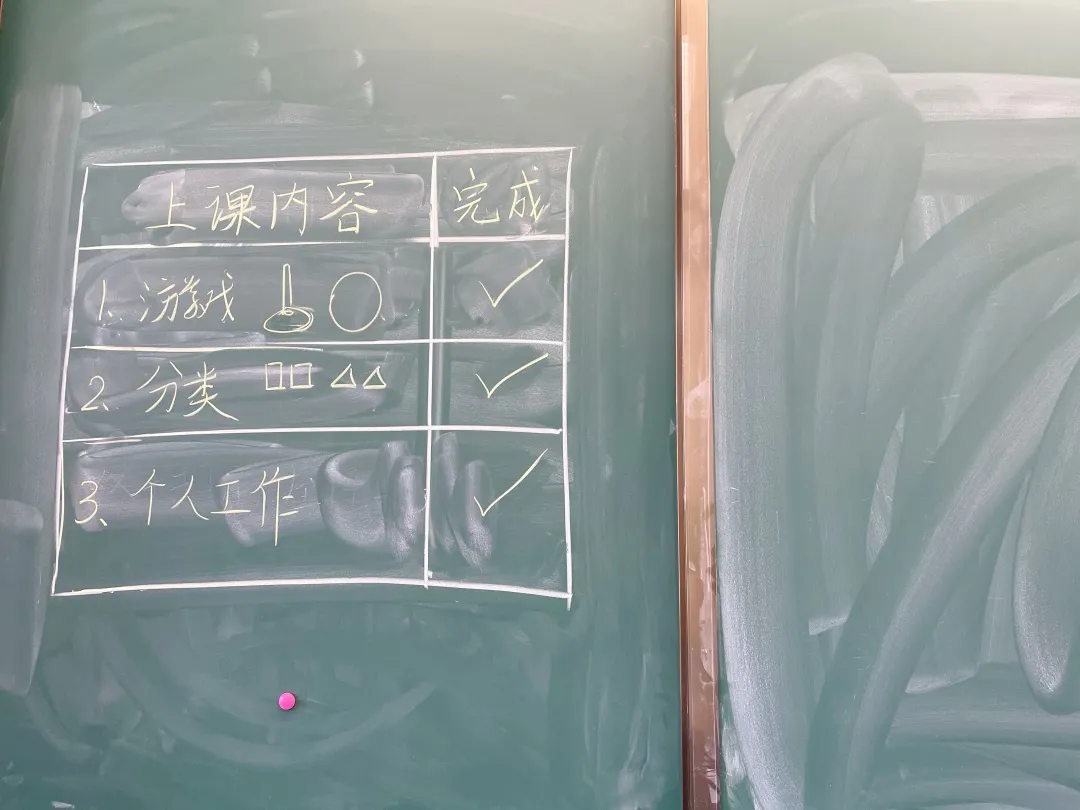 上课内容 完成
1、游戏 ✓
2、分类 ✓
3、个人工作 ✓